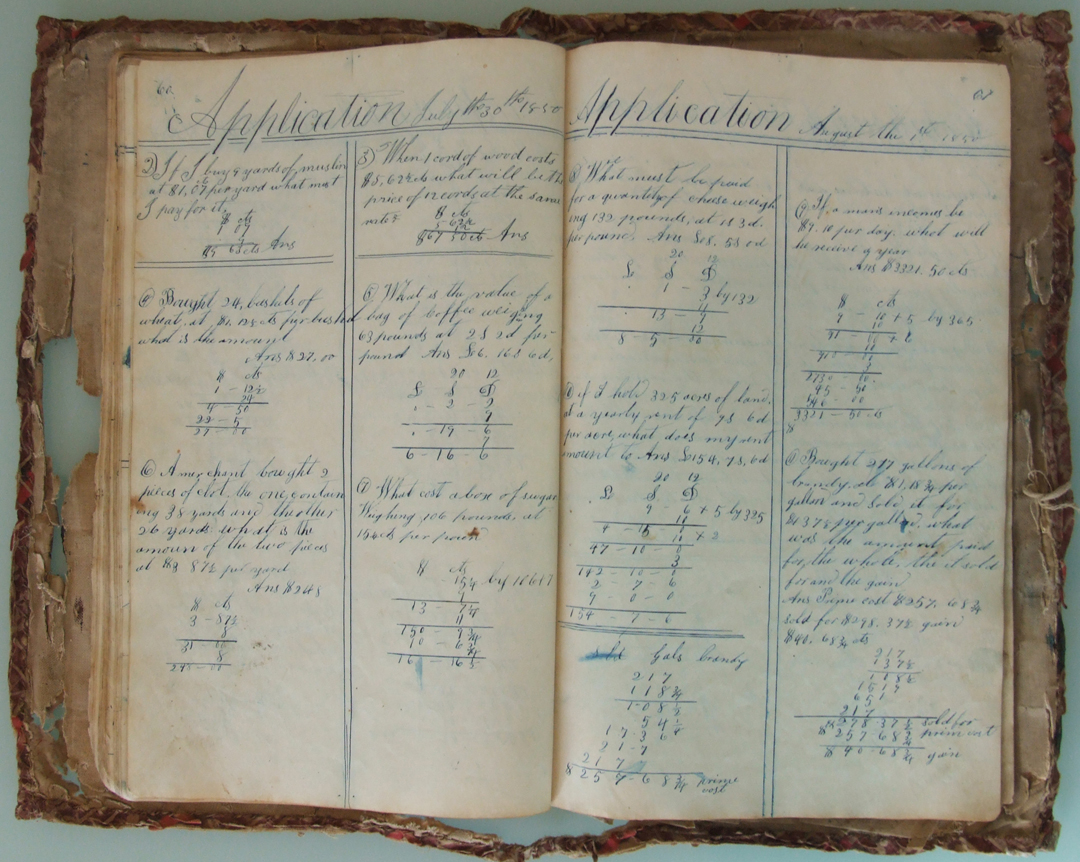 60
Application July th 30th 1850
2) If I buy 9 yards of muslin
at $1,07 per yard what must
I pay for it,
$ cts
Ans
3) When 1 cord of wood costs
$5,62½ cts what will be the
price of 12 cords at the same
rate?
$ cts
5 62½
12
$67 50 cts Ans
Bought 24, bushels of
wheat, at $1, 12½ cts per bushel
what is the amount
Ans $27. 00
$ cts
1 - 12½
4 - 50
22 - 5
27 - 00
6) A merchant bought 2
pieces of clot, the one contain
ing 38 yards and the other
26 yards what is the
amount of the two pieces
at $3 87½ per yard
Ans $248
$ cts
3 - 87½
8
31 - 00
8
248 - 00
6) What is the value of a
bag of Coffee weiging
63 pounds at 2S 2d per
pound Ans £6. 16S 6d,
20 12
£ S D
. - 2 - 2
9
. - 19 - 6
7
6 - 16 - 6
7) What cost a box of sugar
Weighing 106 pounds, at
15¼ cts per poun
$ cts
Application August the 1st 1850
What must be paid
for a quantity of cheese weigh
ing 132 pounds, at 1S 3d.
per pound, Ans £8. 5S 0d
20 12
£ S D
. 1 - 3 by 132
11
. 13 - 9
12
8 - 5 - 0
if I hold 325 acres of land,
at a yearly rent of 9S 6d
per acre, what does my rent
amount to Ans £154, 7S, 6d
20 12
£ S D
9 - 6 + 5 by 325
4 - 15
47 - 10 - 0
3
142 - 10 - 0
2 - 7 - 6
9 - 0 - 0
154 - 7 - 6
Gals brandy
217
118¾
108½
217
217
$ 257 - 68¾ prime
cost
If a mans incomes be
$9. 10 per day. what will
he recieve a year
Ans $3321. 50 cts
$ cts
9 - 10 + 5 by 365
10
91 - 10 + 6
10
910 - 00
3
2730 - 00
3321 - 50 cts
$
Bought 217 gallons of
brandy, at $1,18¾ per
gallon and sold it for
$1 37½ per gallon. what
was the amount paid
for the whole, the it sold
for and the gain
Ans Prime cost $257. 68¾
sold for $298. 37½ gain
$40. 68¾ cts
217
137½
108½
1519
651
217
$ 298 - 37½ sold for
$ 257 68¾ prime cost
$ 40 - 68¾ gain